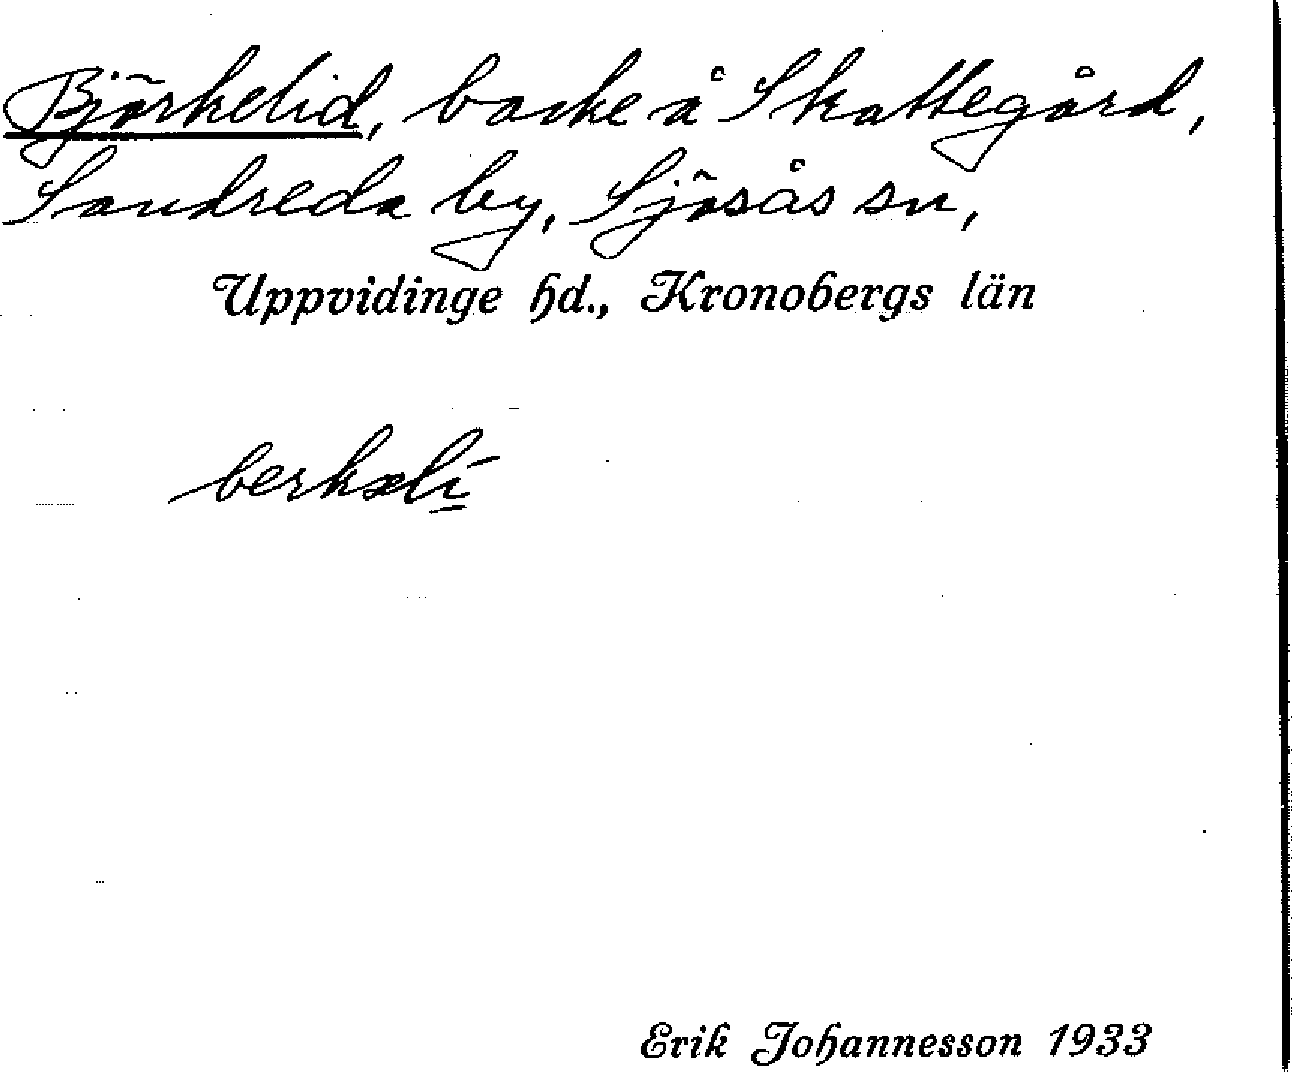 Björkelid, backe å Skattegård,
Sandreda by, Sjösås sn,
Uppvidinge hd., Kronobergs län
berkæli
Erik Johannesson 1933